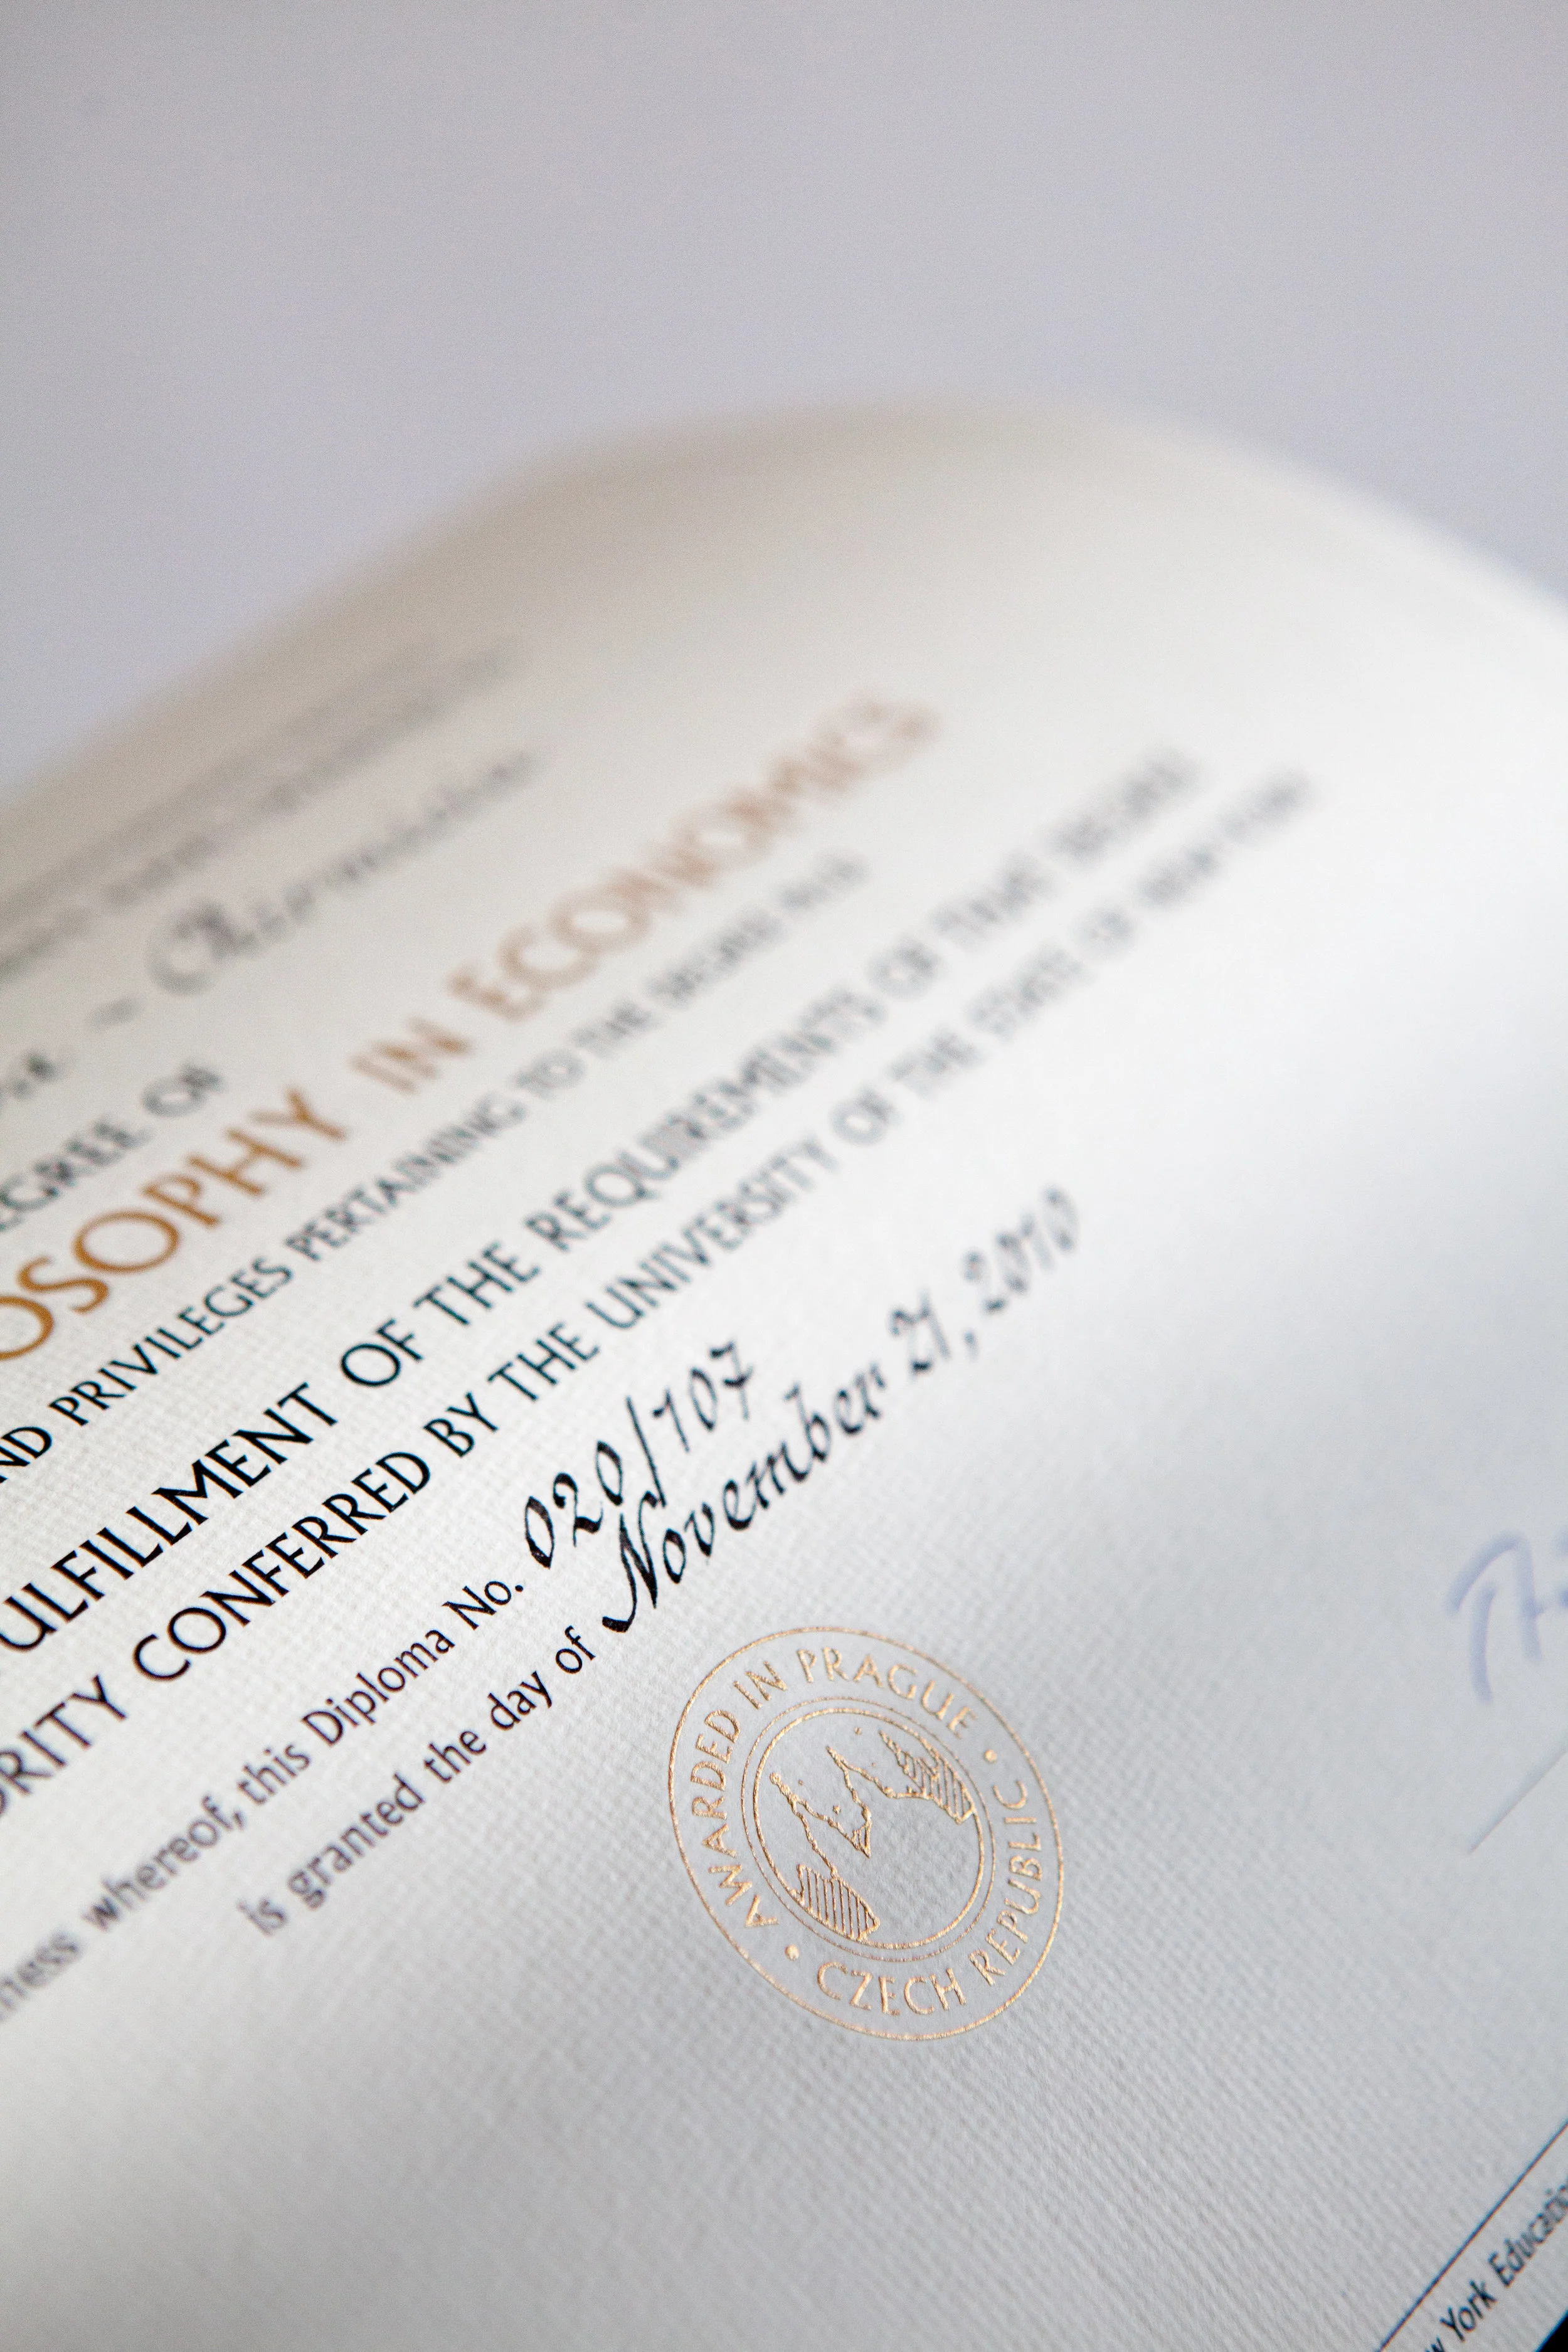 EGREE OF
OSOPHY IN ECONOMICS
ND PRIVILEGES PERTAINING TO THE DEGREE AND
ULFILLMENT OF THE REQUIREMENTS OF THAT DEGREE
ORITY CONFERRED BY THE UNIVERSITY OF THE STATE OF NEW YORK
ness whereof, this Diploma No. 020/107
is granted the day of November 21, 2010
AWARDED IN PRAGUE • CZECH REPUBLIC •
w York Education